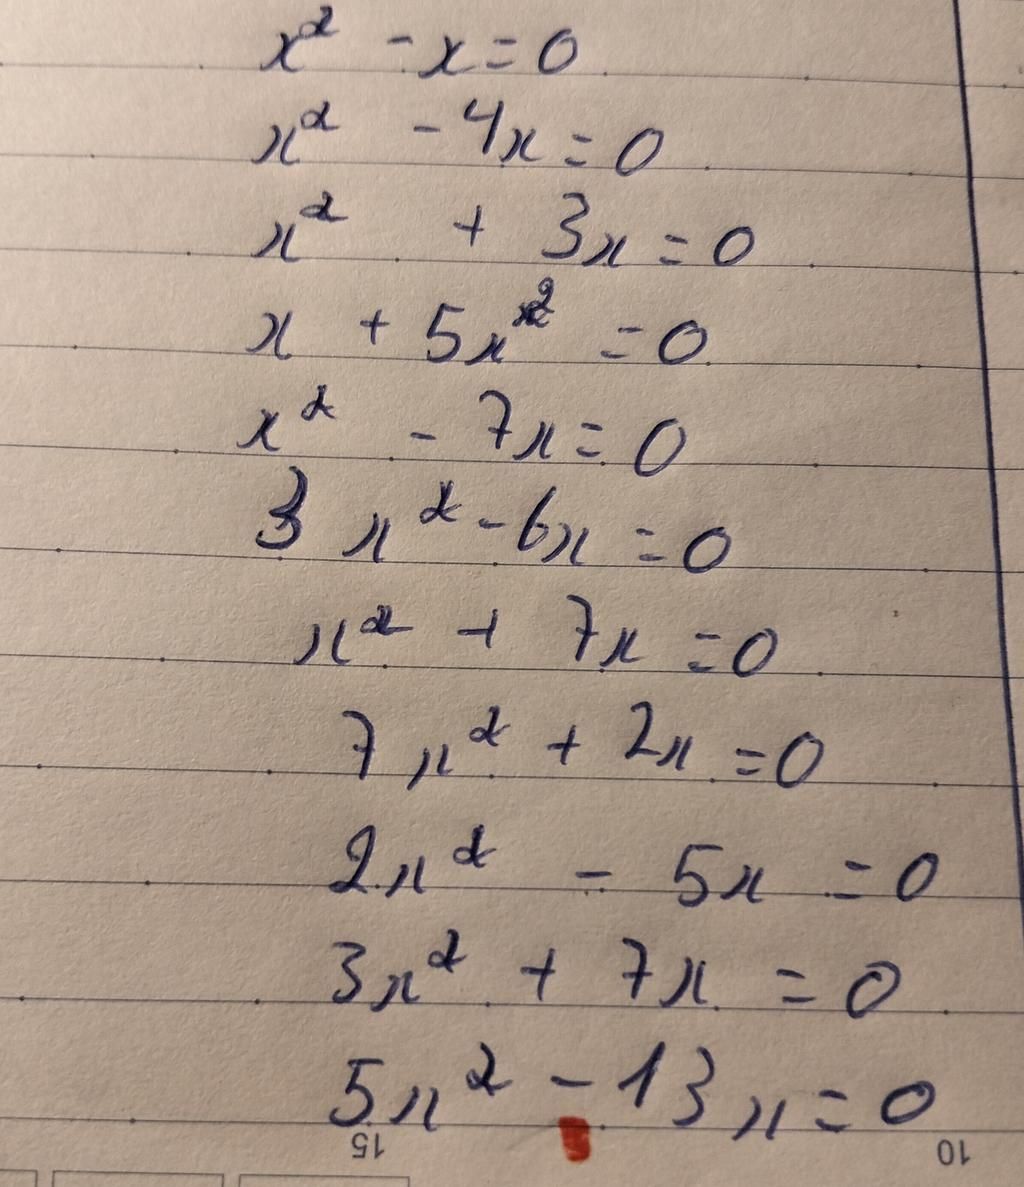 x² - x = 0
x² - 4x = 0
x² + 3x = 0
x + 5x² = 0
x² - 7x = 0
3x² - 6x = 0
x² + 7x = 0
7x² + 2x = 0
2x² - 5x = 0
3x² + 7x = 0
5x² - 13x = 0
15 10